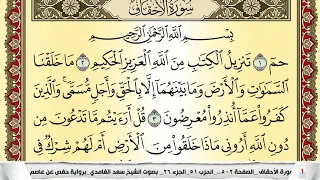 سُورَةُ الأَحْقَافِ
بِسْمِ اللَّهِ الرَّحْمَٰنِ الرَّحِيمِ
حمٓ ١ تَنزِيلُ الْكِتَٰبِ مِنَ اللَّهِ الْعَزِيزِ الْحَكِيمِ ٢ مَا خَلَقْنَا
السَّمَٰوَٰتِ وَالْأَرْضَ وَمَا بَيْنَهُمَآ إِلَّا بِالْحَقِّ وَأَجَلٍ مُّسَمًّى ۚ وَالَّذِينَ
كَفَرُوا۟ عَمَّآ أُنذِرُوا۟ مُعْرِضُونَ ٣ قُلْ أَرَءَيْتُم مَّا تَدْعُونَ مِن
دُونِ اللَّهِ أَرُونِى مَاذَا خَلَقُوا۟ مِنَ الْأَرْضِ أَمْ لَهُمْ شِرْكٌ فِى
سورة الأحقاف - الصفحة ٥٠٢ - الحزب ٥١ - الجزء ٢٦ - بصوت الشيخ سعد الغامدي - برواية حفص عن عاصم